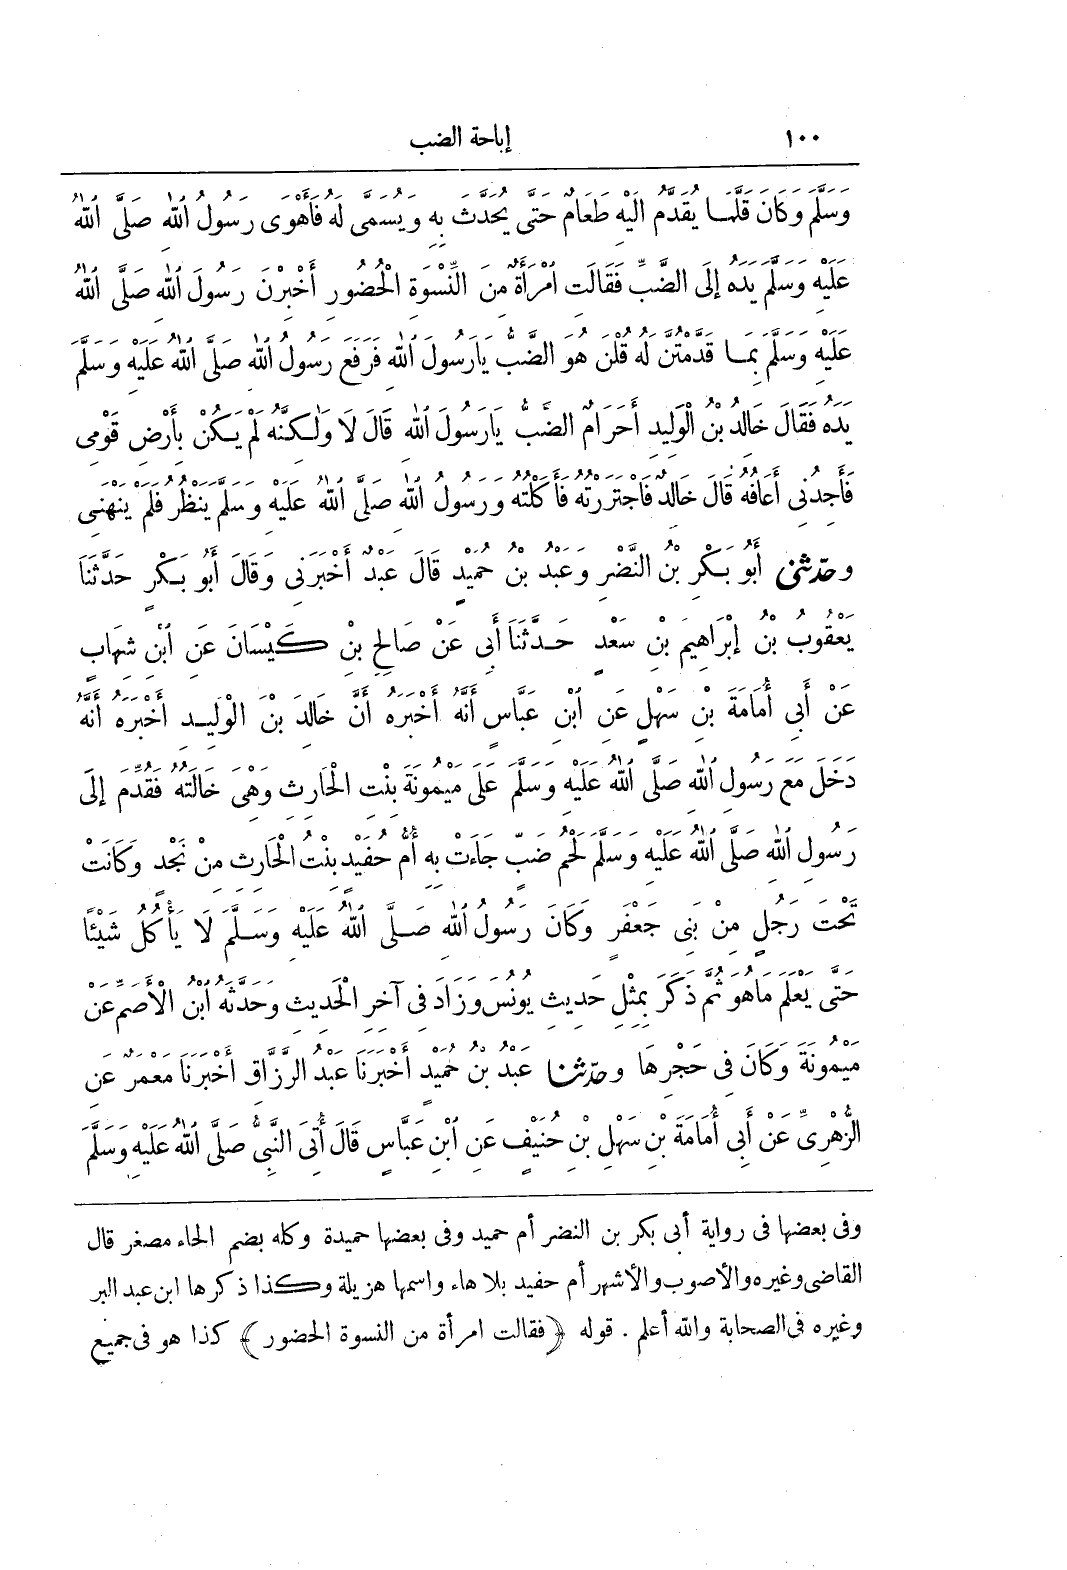 ١٠٠ إباحة الضب
وَسَلَّمَ وَكَانَ قَلَّمَا يُقَدَّمُ الَيْهِ طَعَامٌ حَتَّى يُحَدَّثَ بِهِ وَيُسَمَّى لَهُ فَأَهْوَى رَسُولُ اللهِ صَلَّى اللهُ
عَلَيْهِ وَسَلَّمَ يَدَهُ إِلَى الضَّبِّ فَقَالَتِ امْرَأَةٌ مِنَ النِّسْوَةِ الْحُضُورِ أَخْبِرْنَ رَسُولَ اللهِ صَلَّى اللهُ
عَلَيْهِ وَسَلَّمَ بِمَا قَدَّمْتُنَّ لَهُ قُلْنَ هُوَ الضَّبُّ يَارَسُولَ اللهِ فَرَفَعَ رَسُولُ اللهِ صَلَّى اللهُ عَلَيْهِ وَسَلَّمَ
يَدَهُ فَقَالَ خَالِدُ بْنُ الْوَلِيدِ أَحَرَامٌ الضَّبُّ يَارَسُولَ اللهِ قَالَ لَا وَلٰكِنَّهُ لَمْ يَكُنْ بِأَرْضِ قَوْمِى
فَأَجِدُنِى أَعَافُهُ قَالَ خَالِدٌ فَاجْتَرَرْتُهُ فَأَكَلْتُهُ وَرَسُولُ اللهِ صَلَّى اللهُ عَلَيْهِ وَسَلَّمَ يَنْظُرُ فَلَمْ يَنْهَنِى
وحدثنى أَبُو بَكْرِ بْنُ النَّضْرِ وَعَبْدُ بْنُ حُمَيْدٍ قَالَ عَبْدٌ أَخْبَرَنِى وَقَالَ أَبُو بَكْرٍ حَدَّثَنَا
يَعْقُوبُ بْنُ إِبْرَاهِيمَ بْنِ سَعْدٍ حَدَّثَنَا أَبِى عَنْ صَالِحِ بْنِ كَيْسَانَ عَنِ ابْنِ شِهَابٍ
عَنْ أَبِى أُمَامَةَ بْنِ سَهْلٍ عَنِ ابْنِ عَبَّاسٍ أَنَّهُ أَخْبَرَهُ أَنَّ خَالِدَ بْنَ الْوَلِيدِ أَخْبَرَهُ أَنَّهُ
دَخَلَ مَعَ رَسُولِ اللهِ صَلَّى اللهُ عَلَيْهِ وَسَلَّمَ عَلَى مَيْمُونَةَ بِنْتِ الْحَارِثِ وَهْىَ خَالَتُهُ فَقُدِّمَ إِلَى
رَسُولِ اللهِ صَلَّى اللهُ عَلَيْهِ وَسَلَّمَ لَحْمُ ضَبٍّ جَاءَتْ بِهِ أُمُّ حُفَيْدٍ بِنْتُ الْحَارِثِ مِنْ نَجْدٍ وَكَانَتْ
تَحْتَ رَجُلٍ مِنْ بَنِى جَعْفَرٍ وَكَانَ رَسُولُ اللهِ صَلَّى اللهُ عَلَيْهِ وَسَلَّمَ لَا يَأْكُلُ شَيْئًا
حَتَّى يَعْلَمَ مَاهُوَ ثُمَّ ذَكَرَ بِمِثْلِ حَدِيثِ يُونُسَ وَزَادَ فِى آخِرِ الْحَدِيثِ وَحَدَّثَهُ ابْنُ الْأَصَمِّ عَنْ
مَيْمُونَةَ وَكَانَ فِى حَجْرِهَا وحدثنا عَبْدُ بْنُ حُمَيْدٍ أَخْبَرَنَا عَبْدُ الرَّزَّاقِ أَخْبَرَنَا مَعْمَرٌ عَنِ
الزُّهْرِىِّ عَنْ أَبِى أُمَامَةَ بْنِ سَهْلِ بْنِ حُنَيْفٍ عَنِ ابْنِ عَبَّاسٍ قَالَ أُتِىَ النَّبِىُّ صَلَّى اللهُ عَلَيْهِ وَسَلَّمَ
وفى بعضها فى رواية أبى بكر بن النضر أم حميد وفى بعضها حميدة وكله بضم الحاء مصغر قال
القاضى وغيره والأصوب والأشهر أم حفيد بلا هاء واسمها هزيلة وكذا ذكرها ابن عبد البر
وغيره فى الصحابة والله أعلم . قوله ﴿فقالت امرأة من النسوة الحضور﴾ كذا هو فى جميع